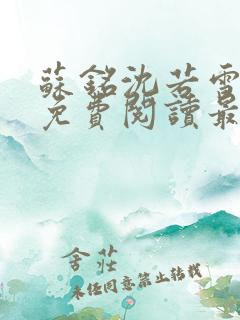 蘇銘沈若雪
免費閱讀最
舍莊
未經同意禁止轉載